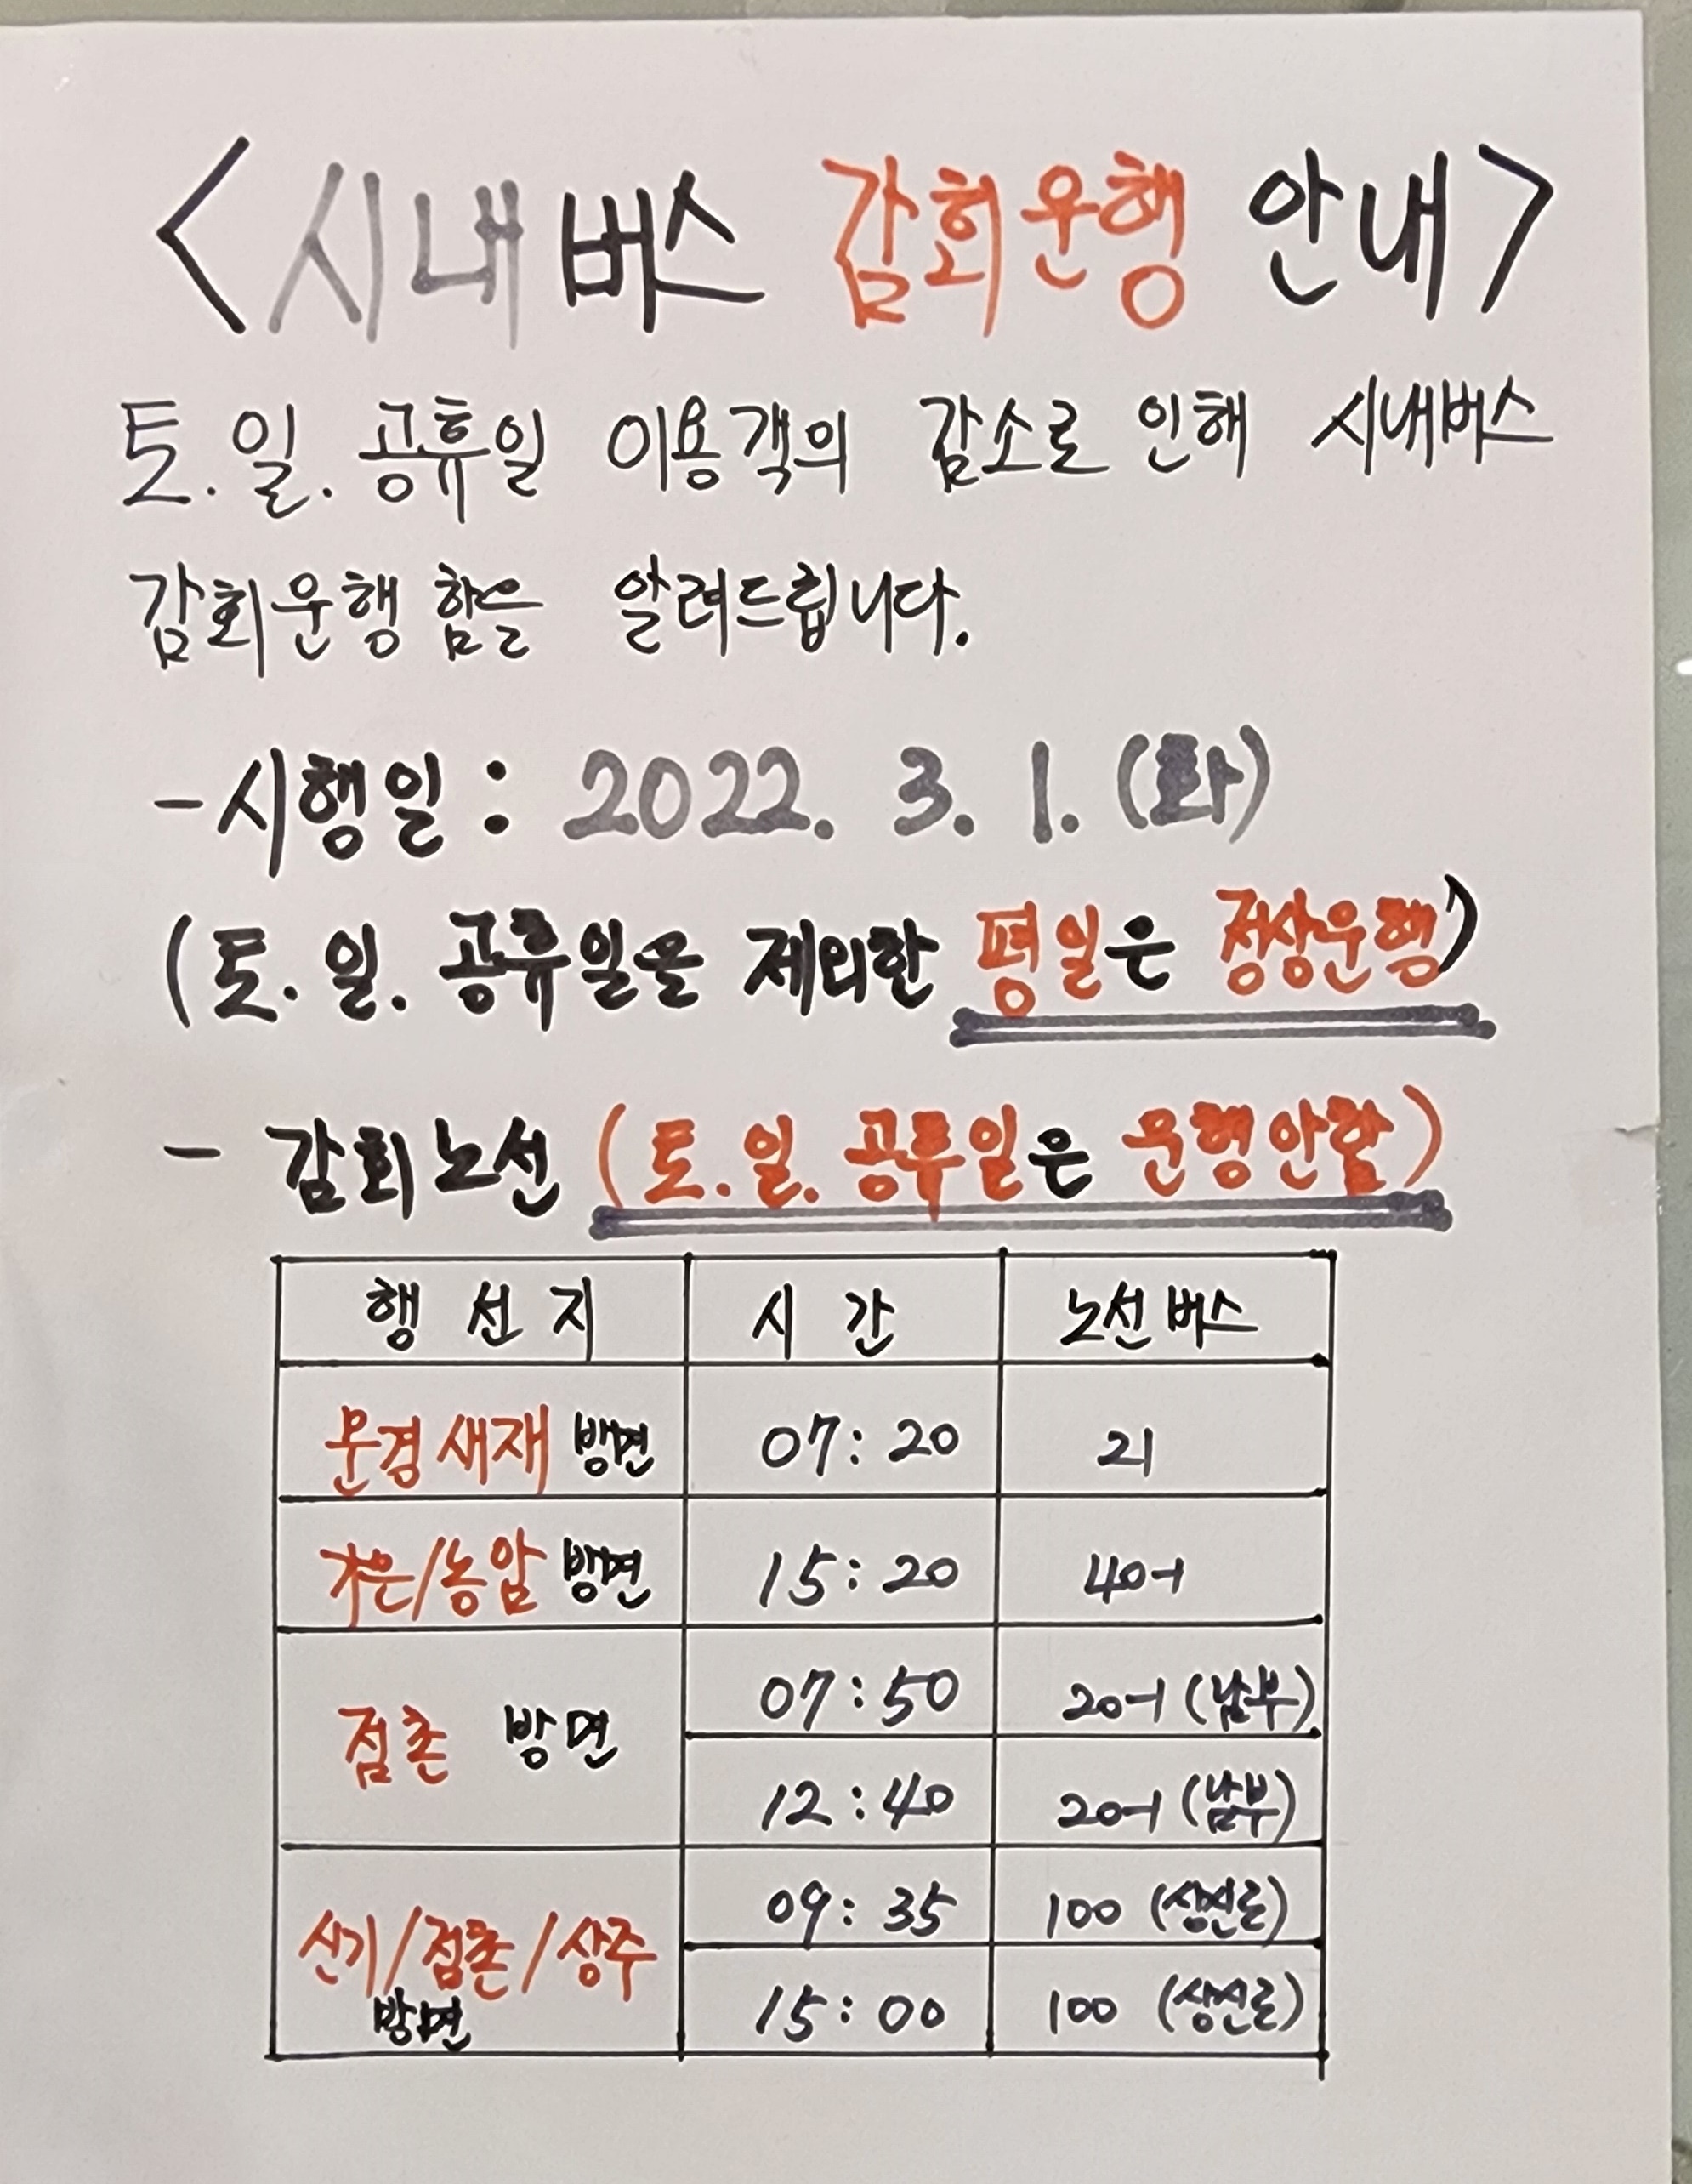 <시내버스 감회운행 안내>
토.일.공휴일 이용객의 감소로 인해 시내버스
감회운행 함을 알려드립니다.
-시행일: 2022. 3. 1. (화)
(토.일.공휴일을 제외한 평일은 정상운행)
- 감회노선 (토.일.공휴일은 운행안함)
행선지 시간 노선버스
문경새재 방면 07:20 21
가은/농암 방면 15:20 40-1
점촌 방면 07:50 20-1 (남부)
12:40 20-1 (남부)
신기/점촌/상주 09:35 100 (상신로)
방면 15:00 100 (상신로)